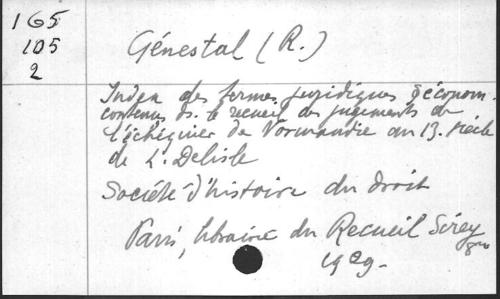 165
105
2
Génestal (R.)
Index des termes juridiques & économ.
contenus ds. le recueil des jugements de
l'échiquier de Normandie au 13. siècle
de L. Delisle
Société d'histoire du droit
Paris, librairie du Recueil Sirey
1929.